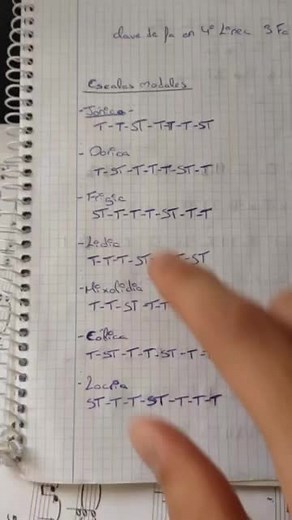 clave de fa en 4ª Línea
Escalas modales
- Jónica -
T-T-ST-T-T-T-ST
- Dórica
T-ST-T-T-T-ST-T
- Frigia
ST-T-T-T-ST-T-T
- Lidia
T-T-T-ST T-ST
- Mixolidia
T-T-ST-T-T
- Eólica
T-ST-T-T-ST-T-
- Locria
ST-T-T-ST-T-T-T